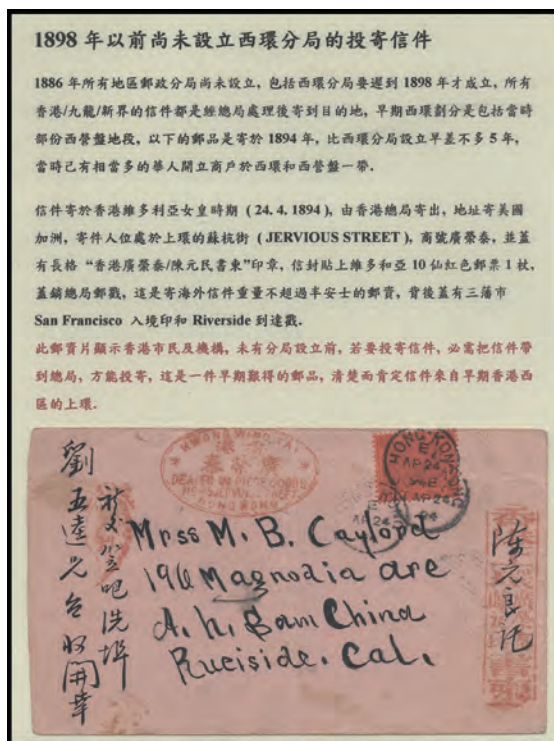 1898 年以前尚未設立西環分局的投寄信件
1886 年所有地區郵政分局尚未設立, 包括西環分局要遲到 1898 年才成立, 所有
香港/九龍/新界的信件都是經總局處理後寄到目的地, 早期西環劃分是包括當時
部份西營盤地段, 以下的郵品是寄於 1894 年, 比西環分局設立早差不多 5 年,
當時已有相當多的華人開立商戶於西環和西營盤一帶.
信件寄於香港維多利亞女皇時期 ( 24. 4. 1894 ), 由香港總局寄出, 地址寄美國
加洲, 寄件人位處於上環的蘇杭街 ( JERVIOUS STREET ), 商號廣榮泰, 並蓋
有長格 “香港廣榮泰/陳元民書柬”印章, 信封貼上維多和亞 10 仙紅色郵票 1 枚,
蓋銷總局郵戳, 這是寄海外信件重量不超過半安士的郵資, 背後蓋有三藩市
San Francisco 入境印和 Riverside 到達戳.
此郵資片顯示香港市民及機構, 未有分局設立前, 若要投寄信件, 必需把信件帶
到總局, 方能投寄, 這是一件早期艱得的郵品, 清楚而肯定信件來自早期香港西
區的上環.
HWONG WING TAI
港 香
泰榮廣
DEALER IN PIECE GOODS
HONGKONG
HONG KONG
E
AP 24
94
Mrss M. B. Caylord
196 Magnodia are
A. h. Bam China
Ruciside. Cal.
劉五達兄台收開幸
陳元良託